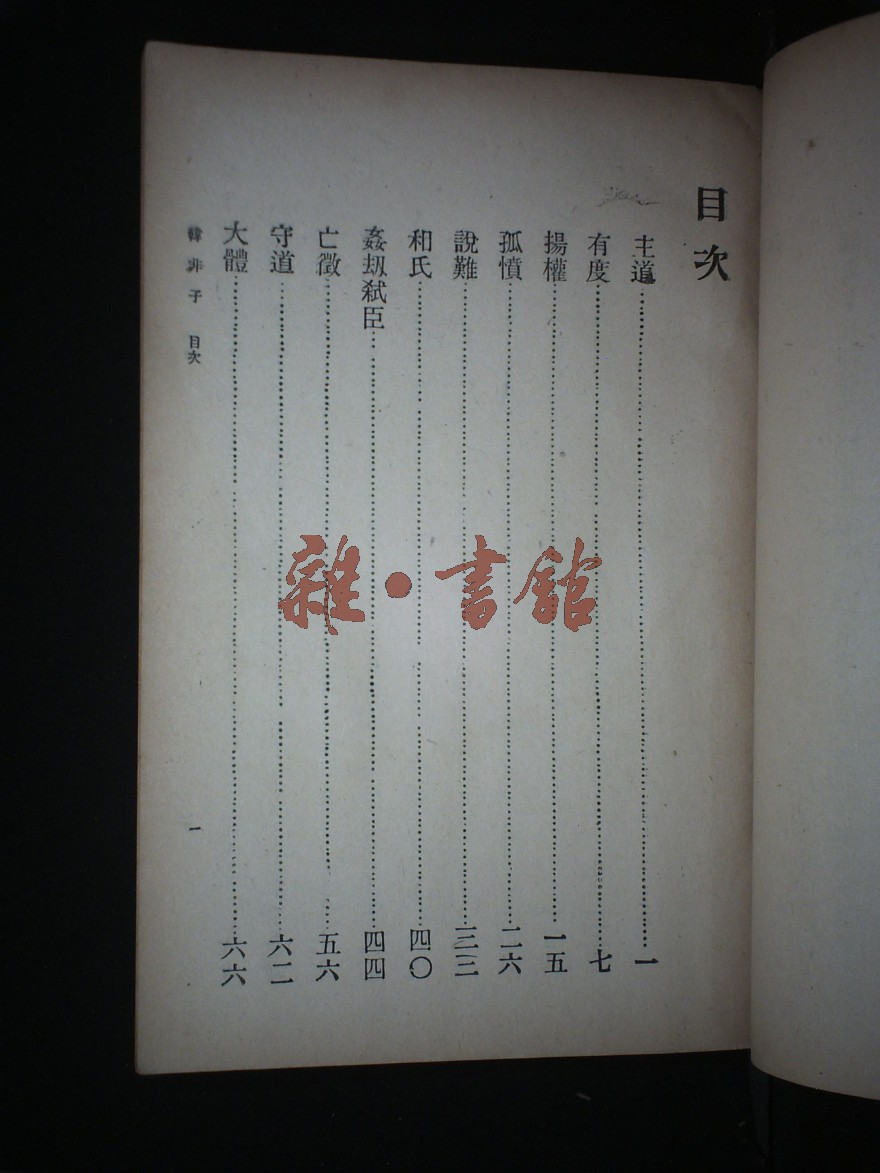 目次
主道 一
有度 七
揚權 一五
孤憤 二六
說難 三三
和氏 四〇
姦劫弒臣 四四
亡徵 五六
守道 六二
大體 六六
韓非子 目次 一
雜•書館